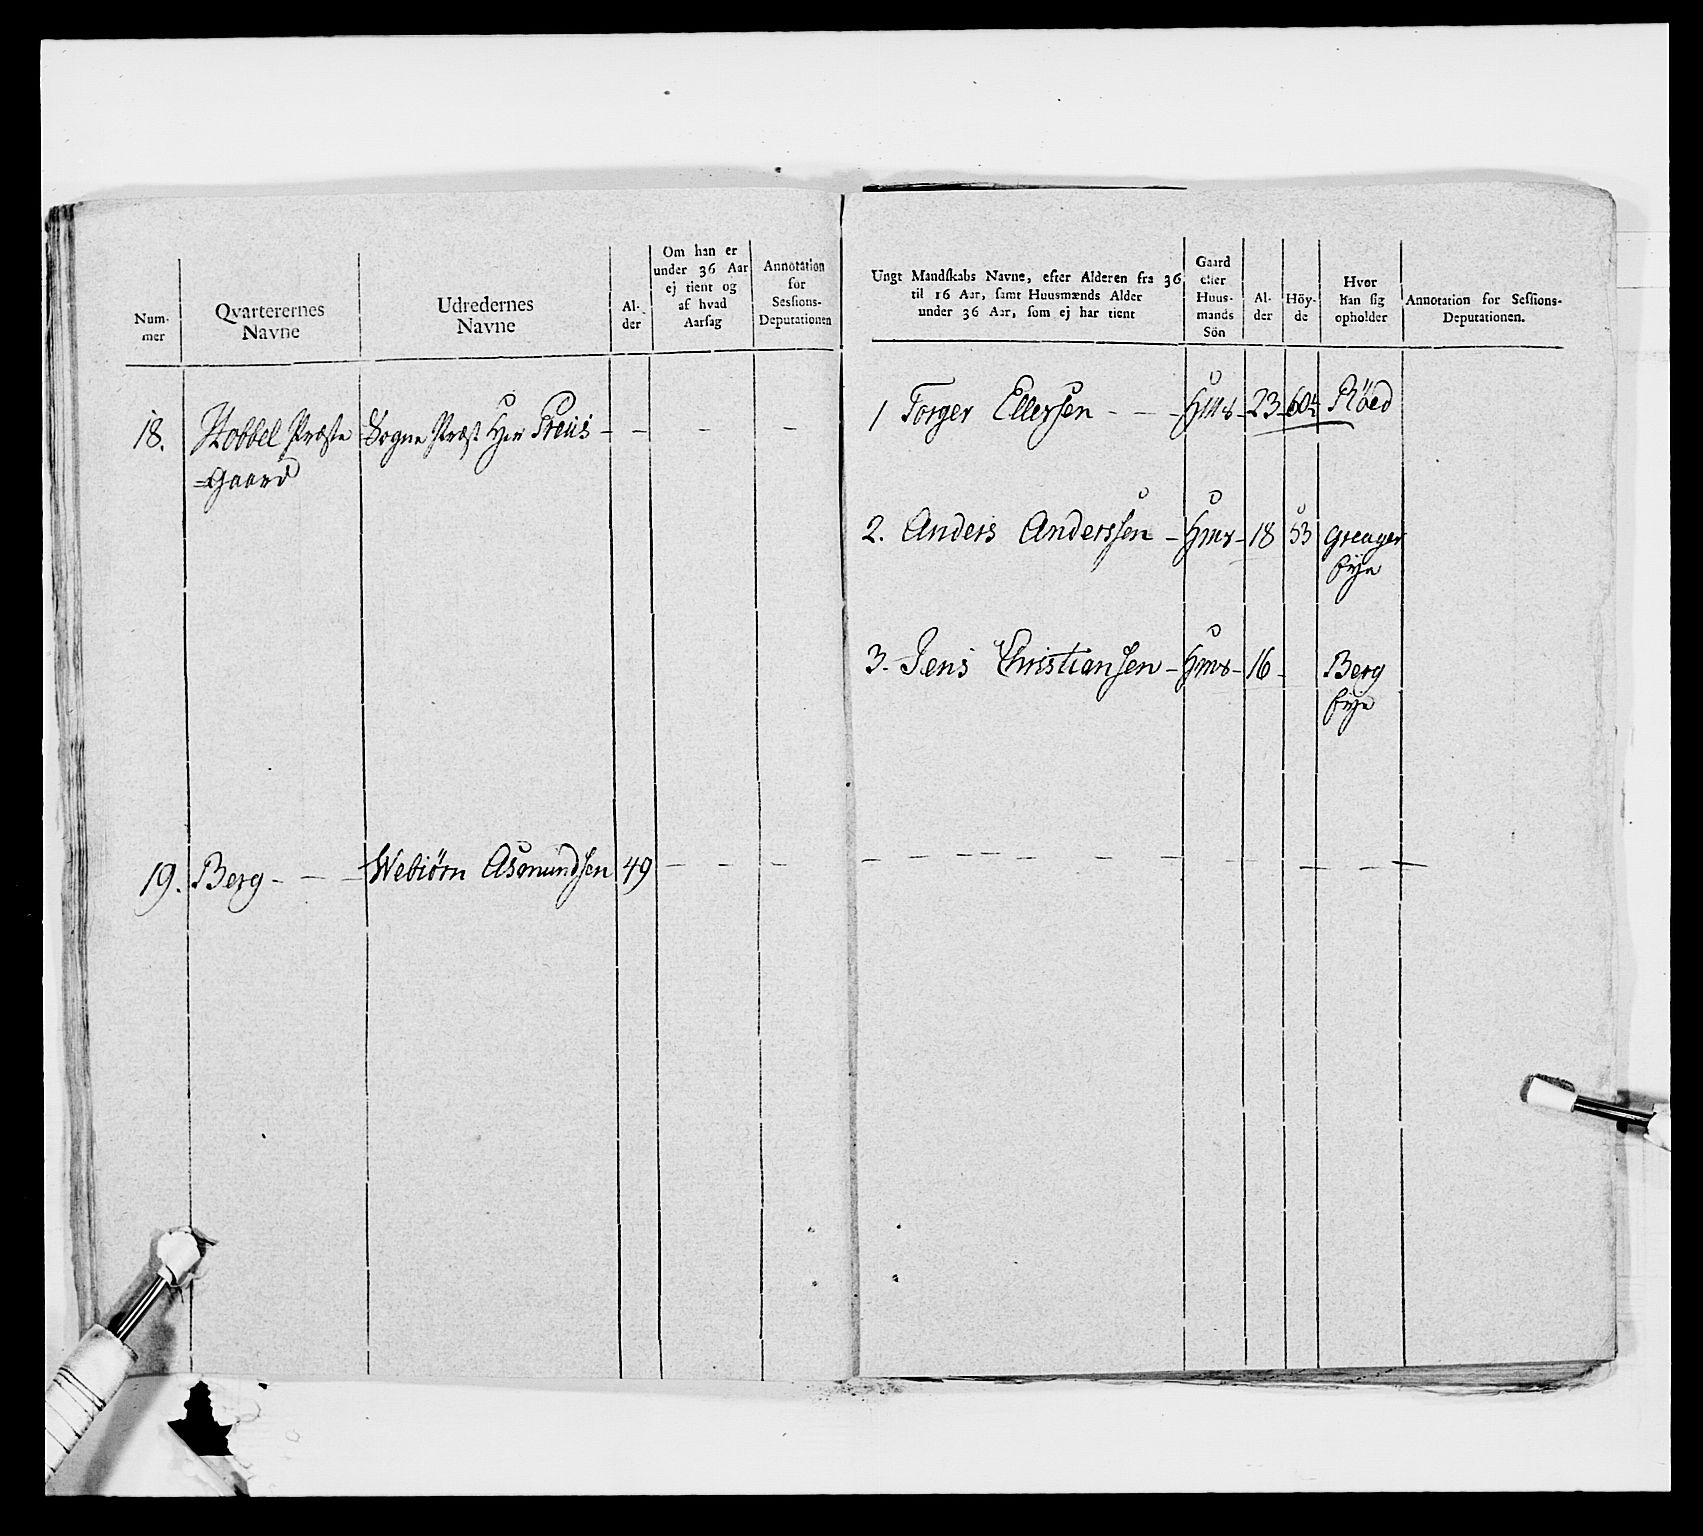 Num-
mer
Qvarterernes
Navne
Udredernes
Navne
Al-
der
Om han er
under 36 Aar
ej tient og
af hvad
Aarsag
Annotation
for
Sessions-
Deputationen
18. Stobbel Præste Sogne Præst Her Preus - - - -
=Gaard
19. Berg - - - Webiørn Asmundsen 49 - - -
Ungt Mandskabs Navne, efter Alderen fra 36
til 16 Aar, samt Huusmænds Alder
under 36 Aar, som ej har tient
Gaard
eller
Huus-
mands
Sön
Al-
der
Höy-
de
Hvor
han sig
opholder
Annotation for Sessions-
Deputationen.
1 Torger Ellefsen - - - Hms - 23 - 60¼ Röed
2. Anders Anderssen - Hms - 18 53
3. Jens Christiansen - Hms - 16 - Berg